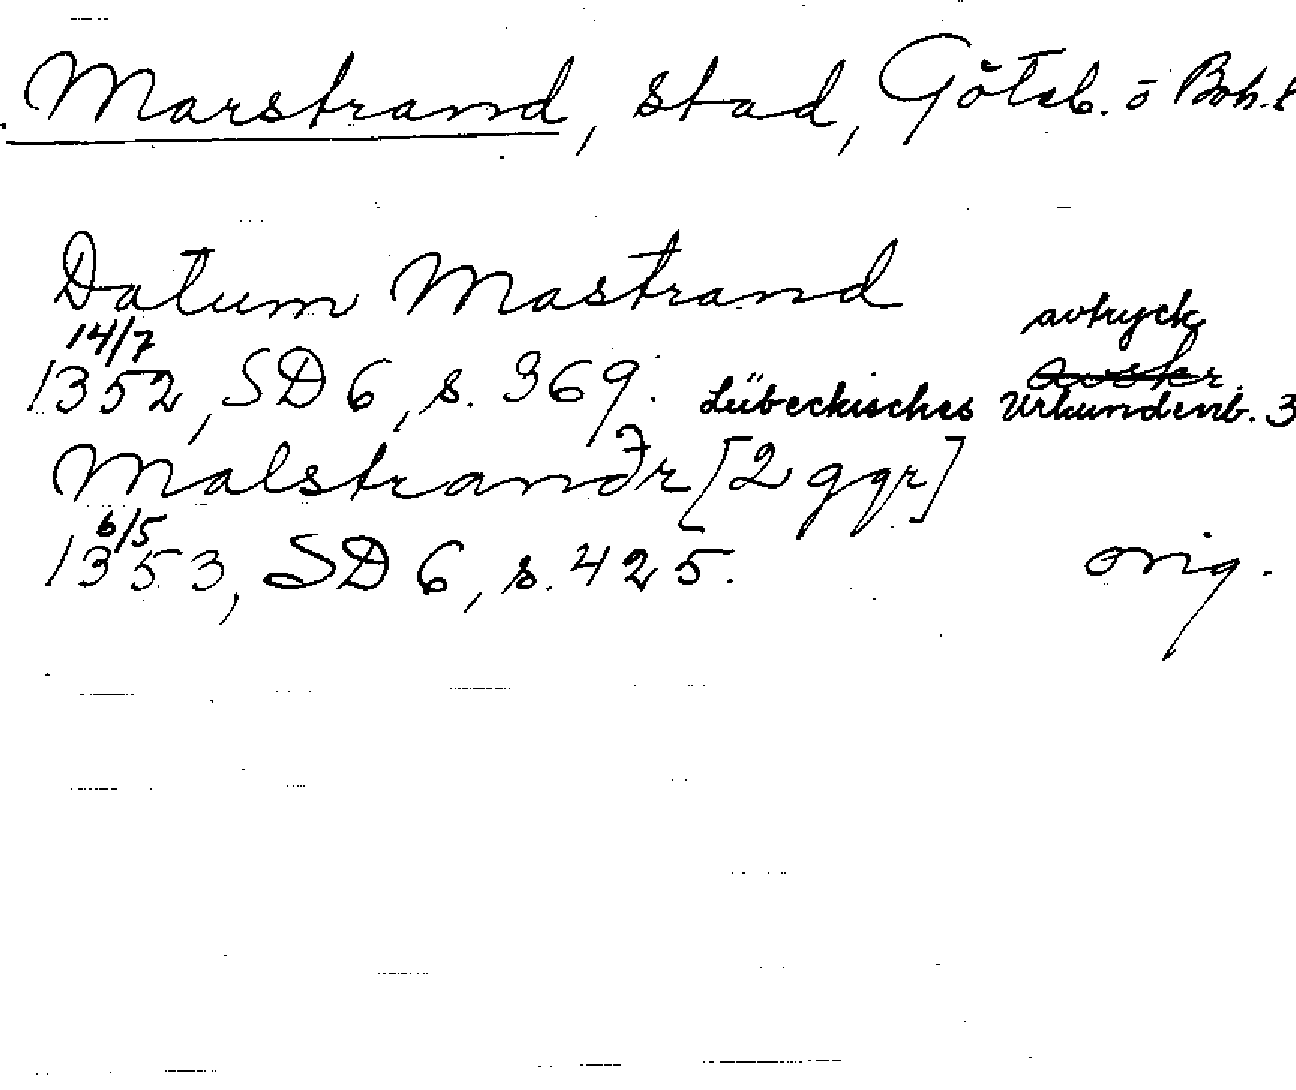 Marstrand, stad, Göteb. o Boh. l
Datum Mastrand
avtryck
14/7
1352, SD 6, s. 369. avskr.
Lübeckisches Urkundenb. 3
Malstrandr [2 ggr]
6/5
1353, SD 6, s. 425. orig.